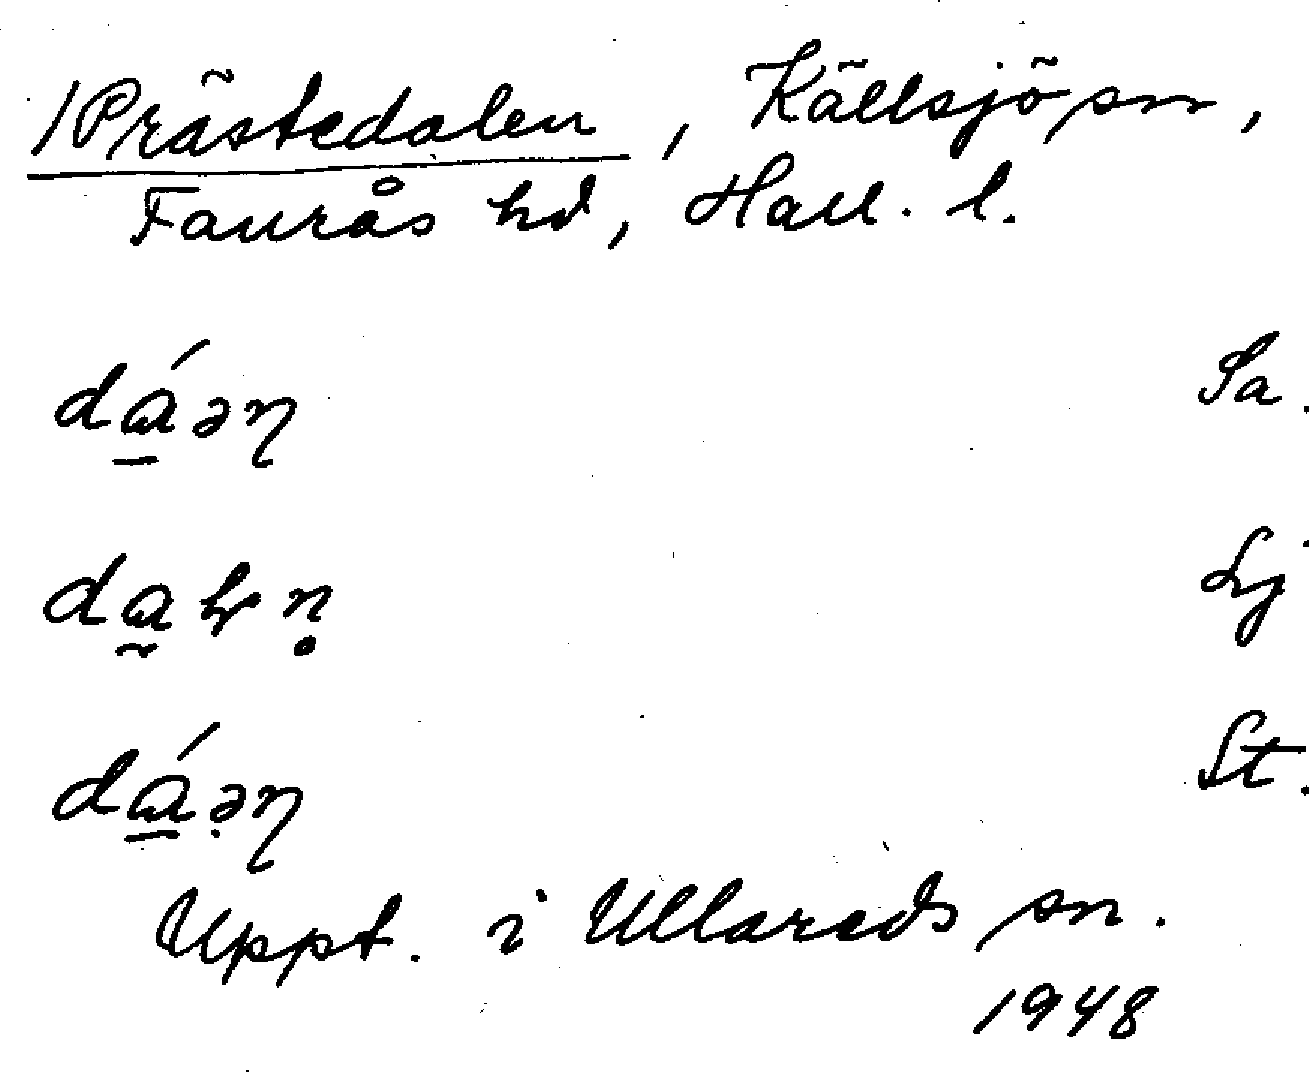 /Prästedalen, Källsjö sn,
Faurås hd, Hall. l.
dá̱əη Sa.
da̰ŀn̥ Lj
dá̱ə̣η St.
Uppt. i Ullareds sn.
1948